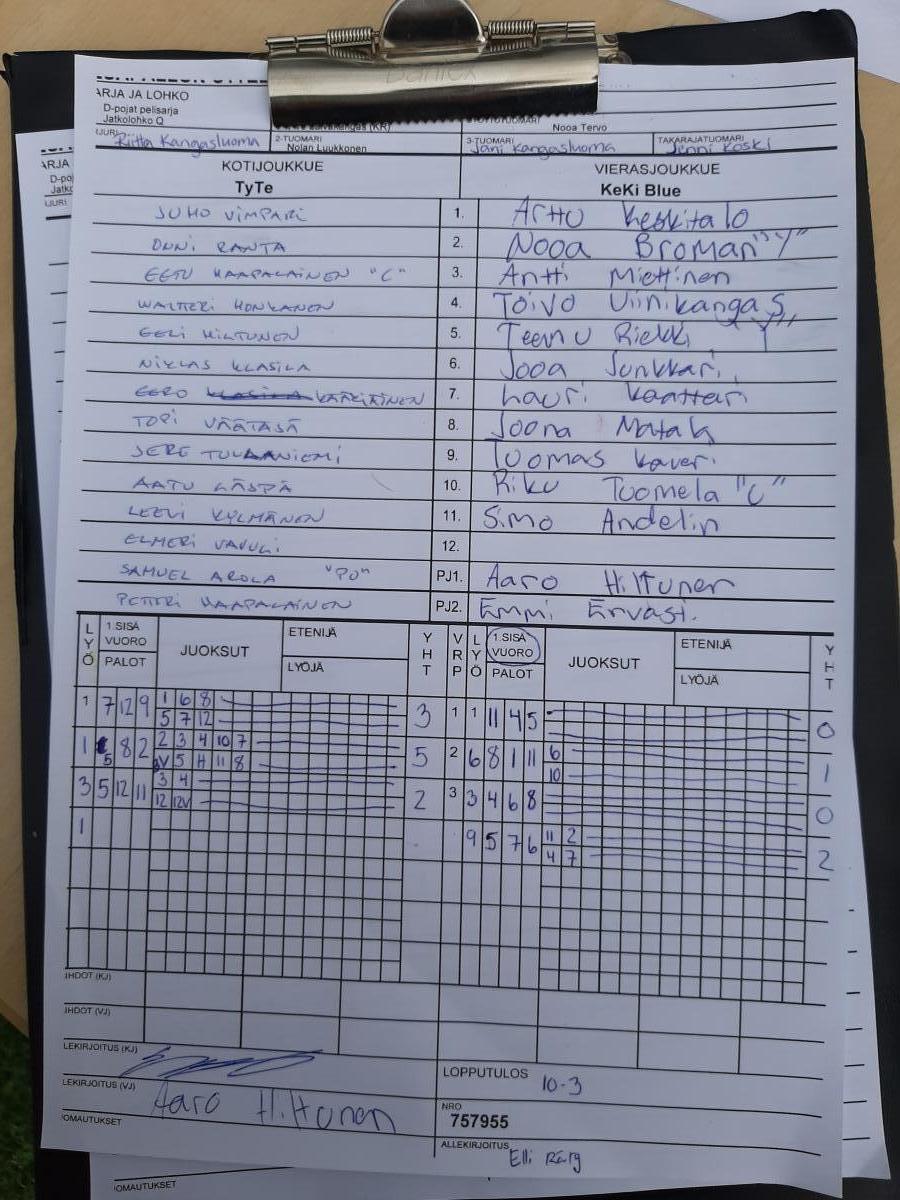 ARJA JA LOHKO
D-pojat pelisarja
Jatkolohko Q
Nooa Tervo
(JURI Riitta Kangasluoma 2-TUOMARI Nolan Luukkonen 3-TUOMARI Jani Kangasluoma TAKARAJATUOMARI Jenni Koski
KOTIJOUKKUE VIERASJOUKKUE
TyTe KeKi Blue
JUHO VIMPARI 1. Arttu Keskitalo
ONNI RANTA 2. Nooa Broman "Y"
EETU HAAPALAINEN "C" 3. Antti Miettinen
WALTTERI HONKANEN 4. Toivo Viinikangas
EELI HILTUNEN 5. Teemu Riekki "Y"
NIKLAS KLASILA 6. Jooa Junkkari
EERO KLASILA KÄRKIÄINEN 7. Lauri Kaattari
TOPI VÄÄTASÄ 8. Joona Matala
JERE TULAANIEMI 9. Tuomas Kaveri
AATU LÄSPÄ 10. Riku Tuomela "C"
LEEVI KYLMÄNEN 11. Simo Andelin
ELMERI VAVULI 12.
SAMUEL AROLA "PO" PJ1. Aaro Hiltunen
PETTERI HAAPALAINEN PJ2. Emmi Ervasti
LYÖ 1.SISÄ VUORO JUOKSUT ETENIJÄ YHT VRP LYÖ 1.SISÄ VUORO JUOKSUT ETENIJÄ YHT
PALOT LYÖJÄ PALOT LYÖJÄ
1 7 12 9 1 6 8 3 1 1 11 4 5 0
5 7 12
1 5 8 2 2 3 4 10 7 5 2 6 8 1 11 6 1
5 H 11 8 10
3 5 12 11 3 4 2 3 3 4 6 8 0
12 12V
1 9 5 7 6 11 2 2
4 7
IHDOT (KJ)
IHDOT (VJ)
LEKIRJOITUS (KJ)
LOPPUTULOS 10-3
LEKIRJOITUS (VJ) Aaro Hiltunen
NRO
757955
OMAUTUKSET
ALLEKIRJOITUS Elli
OMAUTUKSET